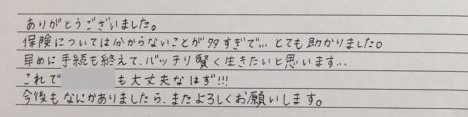 ありがとうございました。
保険については分からないことが多すぎで… とても助かりました。
早めに手続も終えて、バッチリ賢く生きたいと思います…
これで も大丈夫なはず!!!
今後もなにかありましたら、またよろしくお願いします。